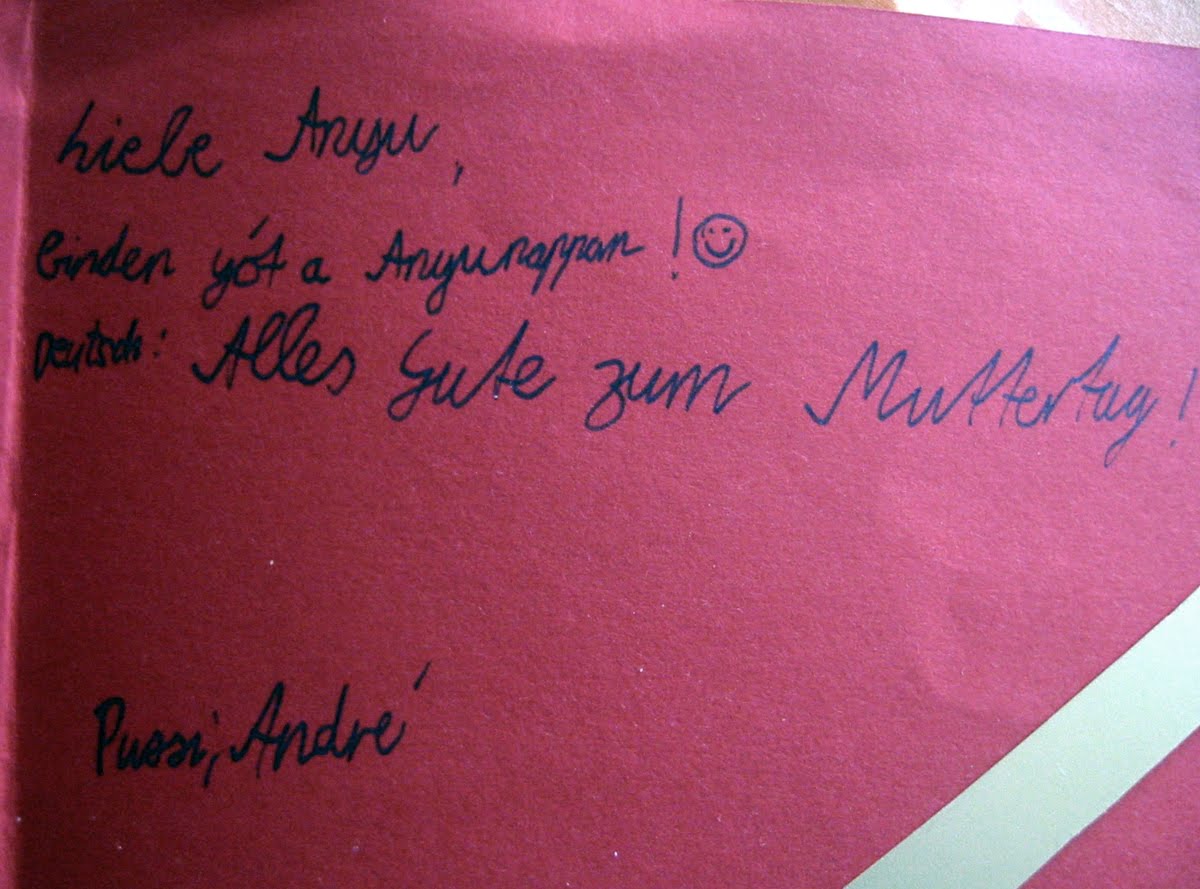 Liebe Anyu,
Einden yót a Anyunappan!☺
Deutsch: Alles Gute zum Muttertag!
Pussi, André